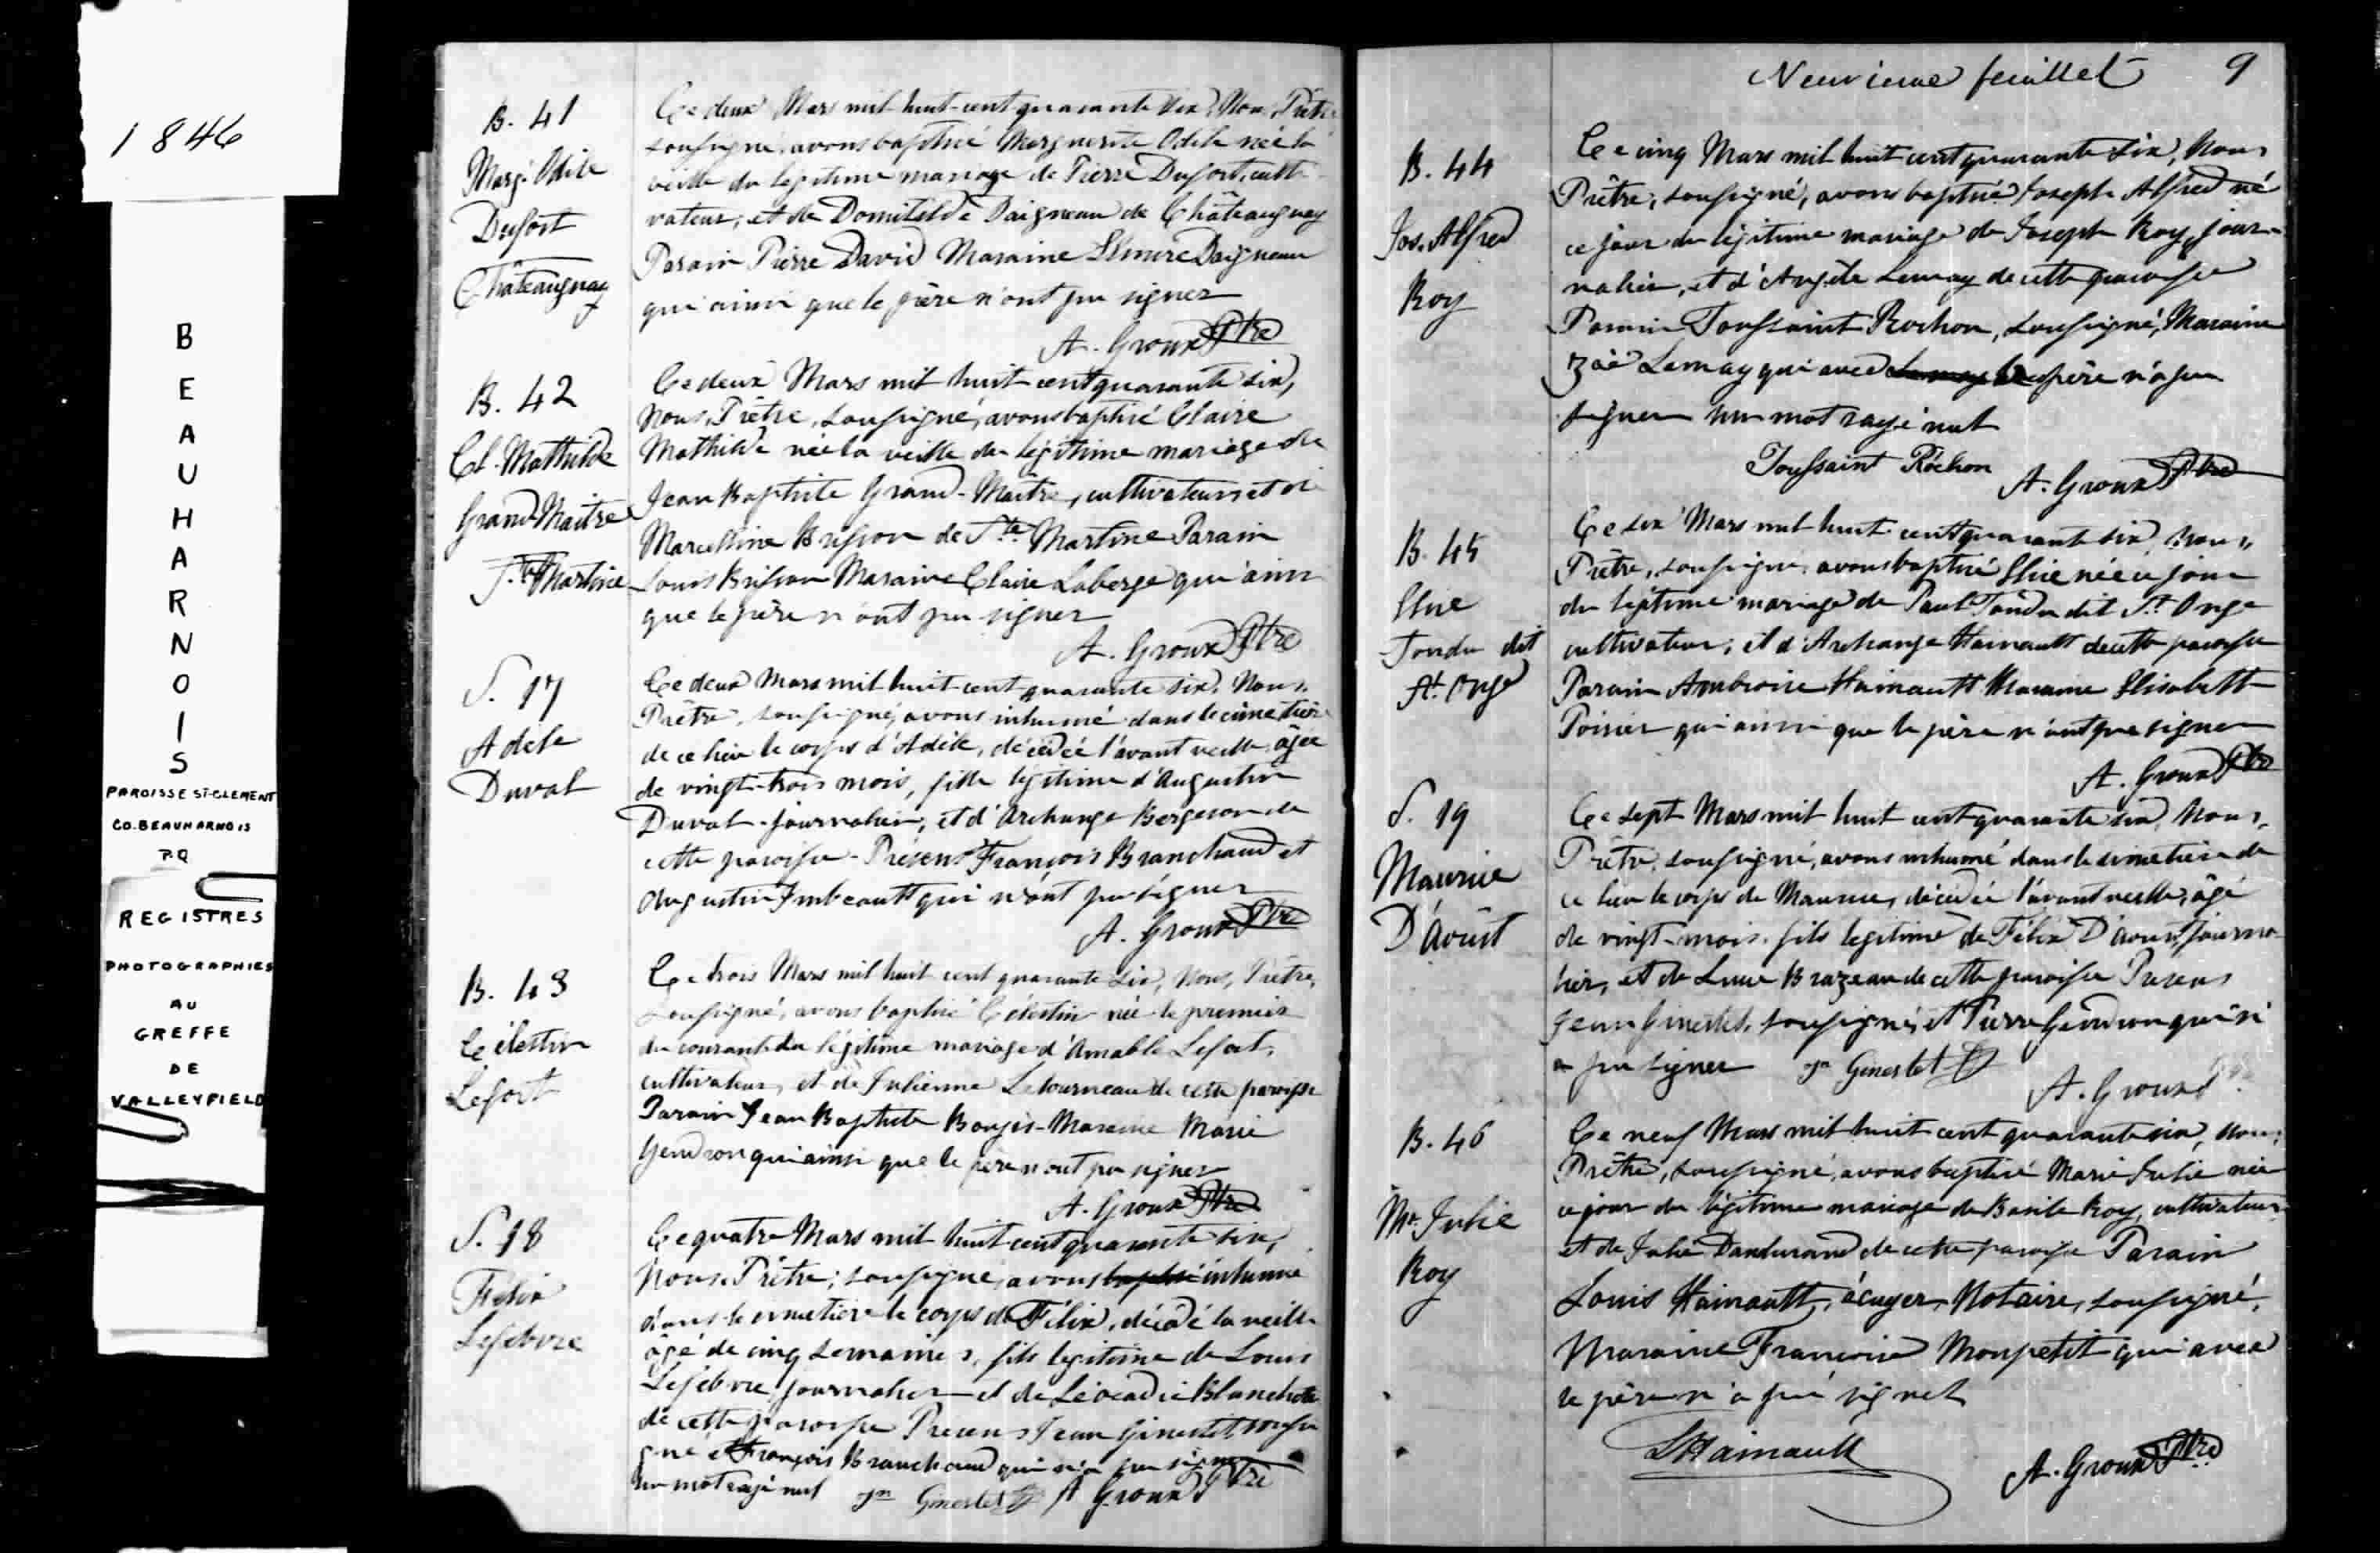 1846
B
E
A
U
H
A
R
N
O
I
S
PAROISSE ST-CLEMENT
CO. BEAUHARNOIS
P.Q
REGISTRES
PHOTOGRAPHIES
AU
GREFFE
DE
VALLEYFIELD
B. 41
Marg. Odile
Dufort
Châteauguay
Ce deux Mars mil huit-cent quarante six, Nous, Prêtre
soussigné, avons baptisé Marguerite Odile née la
veille du légitime mariage de Pierre Dufort, culti-
vateur, et de Domitilde Daigneau de Châteauguay
Parain Pierre David Maraine Elmire Daigneau
qui ainsi que le père n'ont pu signer
A. Groux Ptre
B. 42
Cl. Mathilde
Grand Maitre
Ste Martine
Ce deux Mars mil huit cent quarante six,
Nous, Prêtre, soussigné, avons baptisé Claire
Mathilde née la veille du légitime mariage de
Jean Baptiste Grand-Maitre, cultivateur, et de
Marcelline Brisson de Ste Martine Parain
Louis Brisson Maraine Claire Laberge qui ainsi
que le père n'ont pu signer
A. Groux Ptre
S. 17
Adèle
Duval
Ce deux Mars mil huit cent quarante six, Nous,
Prêtre, soussigné, avons inhumé dans le cimetière
de ce lieu le corps d'Adèle, décédée l'avant veille, âgée
de vingt-trois mois, fille légitime d'Augustin
Duval journalier, et d'Archange Bergeron de
cette paroisse - Présens François Branchaud et
Augustin Imbeault qui n'ont pu signer
A. Groux Ptre
B. 43
Célestin
Lefort
Ce trois Mars mil huit cent quarante six, Nous, Prêtre,
soussigné, avons baptisé Célestin né le premier
du courant du légitime mariage d'Amable Lefort,
cultivateur, et de Julienne Letourneau de cette paroisse
Parain Jean Baptiste Bougis Maraine Marie
Gendron qui ainsi que le père n'ont pu signer
A. Groux Ptre
S. 18
Félix
Lefebvre
Ce quatre Mars mil huit cent quarante six,
Nous, Prêtre, soussigné, avons baptisé inhumé
dans le cimetière le corps de Félix, décédé la veille
âgé de cinq semaines, fils légitime de Louis
Lefebvre, journalier et de Léocadie
de cette paroisse Présens Jean Ginestet soussi
gné et François Branchaud qui n'a pu signer
un mot rayé nul Jn Ginestet A Groux Ptre
Neuvieme feuillet 9
B. 44
Jos. Alfred
Roy
Ce cinq Mars mil huit cent quarante six, Nous
Prêtre, soussigné, avons baptisé Joseph Alfred né
ce jour du légitime mariage de Joseph Roy, jour-
nalier, et d'Angèle Lemay de cette paroisse
Parain Toussaint Rochon, soussigné, Maraine
Zoé Lemay qui avec Lemay le père n'a pu
signer un mot rayé nul
Toussaint Rochon A. Groux Ptre
B. 45
Elise
Tondu dit
St. Onge
Ce six Mars mil huit cent quarante six Nous,
Prêtre, soussigné, avons baptisé Elise née ce jour
du légitime mariage de Paul Tondu dit St. Onge
cultivateur, et d'Archange Hainault de cette paroisse
Parain Ambroise Hainault Maraine Elisabeth
Poirier qui ainsi que le père n'ont pu signer
A. Groux Ptre
S. 19
Maurice
D'Aoûst
Ce sept Mars mil huit cent quarante six, Nous,
Prêtre, soussigné, avons inhumé dans le cimetière de
ce lieu le corps de Maurice, décédé l'avant veille, âgé
de vingt-mois, fils legitime de Félix D'Aoust, journa-
lier, et de Luce Brazeau de cette paroisse Présens
Jean Ginestet, soussigné, et Pierre Gendron qui n'
a pu signer Jn Ginestet
A. Groux
B. 46
Me. Julie
Roy
Ce neuf Mars mil huit cent quarante six, Nous,
Prêtre, soussigné, avons baptisé Marie Julie née
ce jour du légitime mariage de Basile Roy, cultivateur
et de Julie Dandurand de cette paroisse Parain
Louis Hainault, écuyer, Notaire, soussigné,
Maraine Françoise Monpetit qui avec
le père n'a pu signer
LHainault
A. Groux Ptre